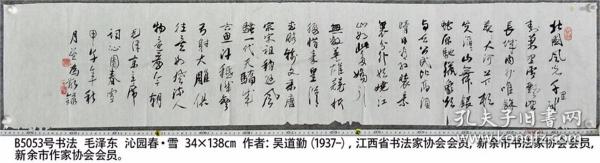 北国风光千里
冰封万里雪飘望
长城内外唯余
莽莽大河上下顿
失滔滔山舞银
蛇原驰蜡象欲
与天公试比高须
晴日看红装素
裹分外妖娆江
山如此多娇引
无数英雄竞折
腰惜秦皇汉
武略输文采唐
宗宋祖稍逊风
骚一代天骄成
吉思汗只识弯
弓射大雕俱
往矣数风流人
物还看今朝
毛泽东主席
词沁园春雪
甲午年秋
月
B5053号书法 毛泽东 沁园春·雪 34×138cm 作者:吴道勤(1937-),江西省书法家协会会员,新余市书法家协会会员,
新余市作家协会会员。